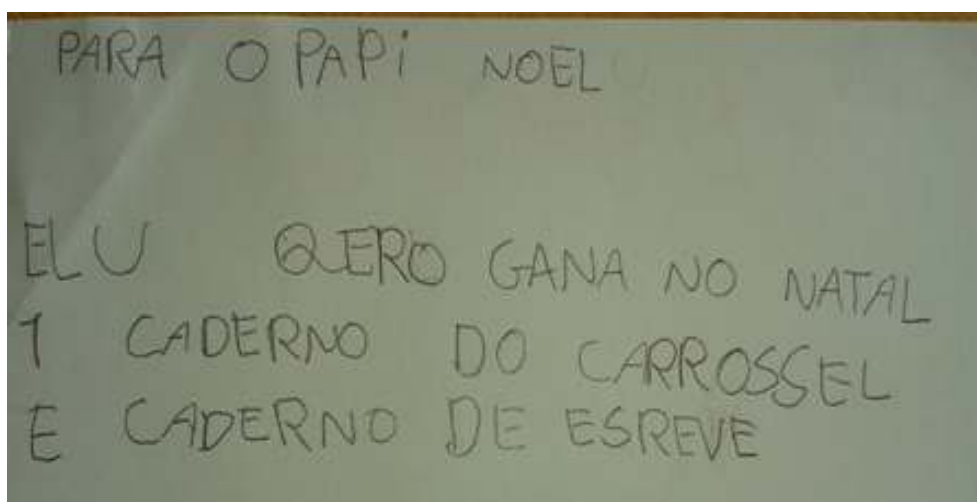 PARA O PAPi NOEL
ELU QERO GANA NO NATAL
1 CADERNO DO CARROSSEL
E CADERNO DE ESREVE